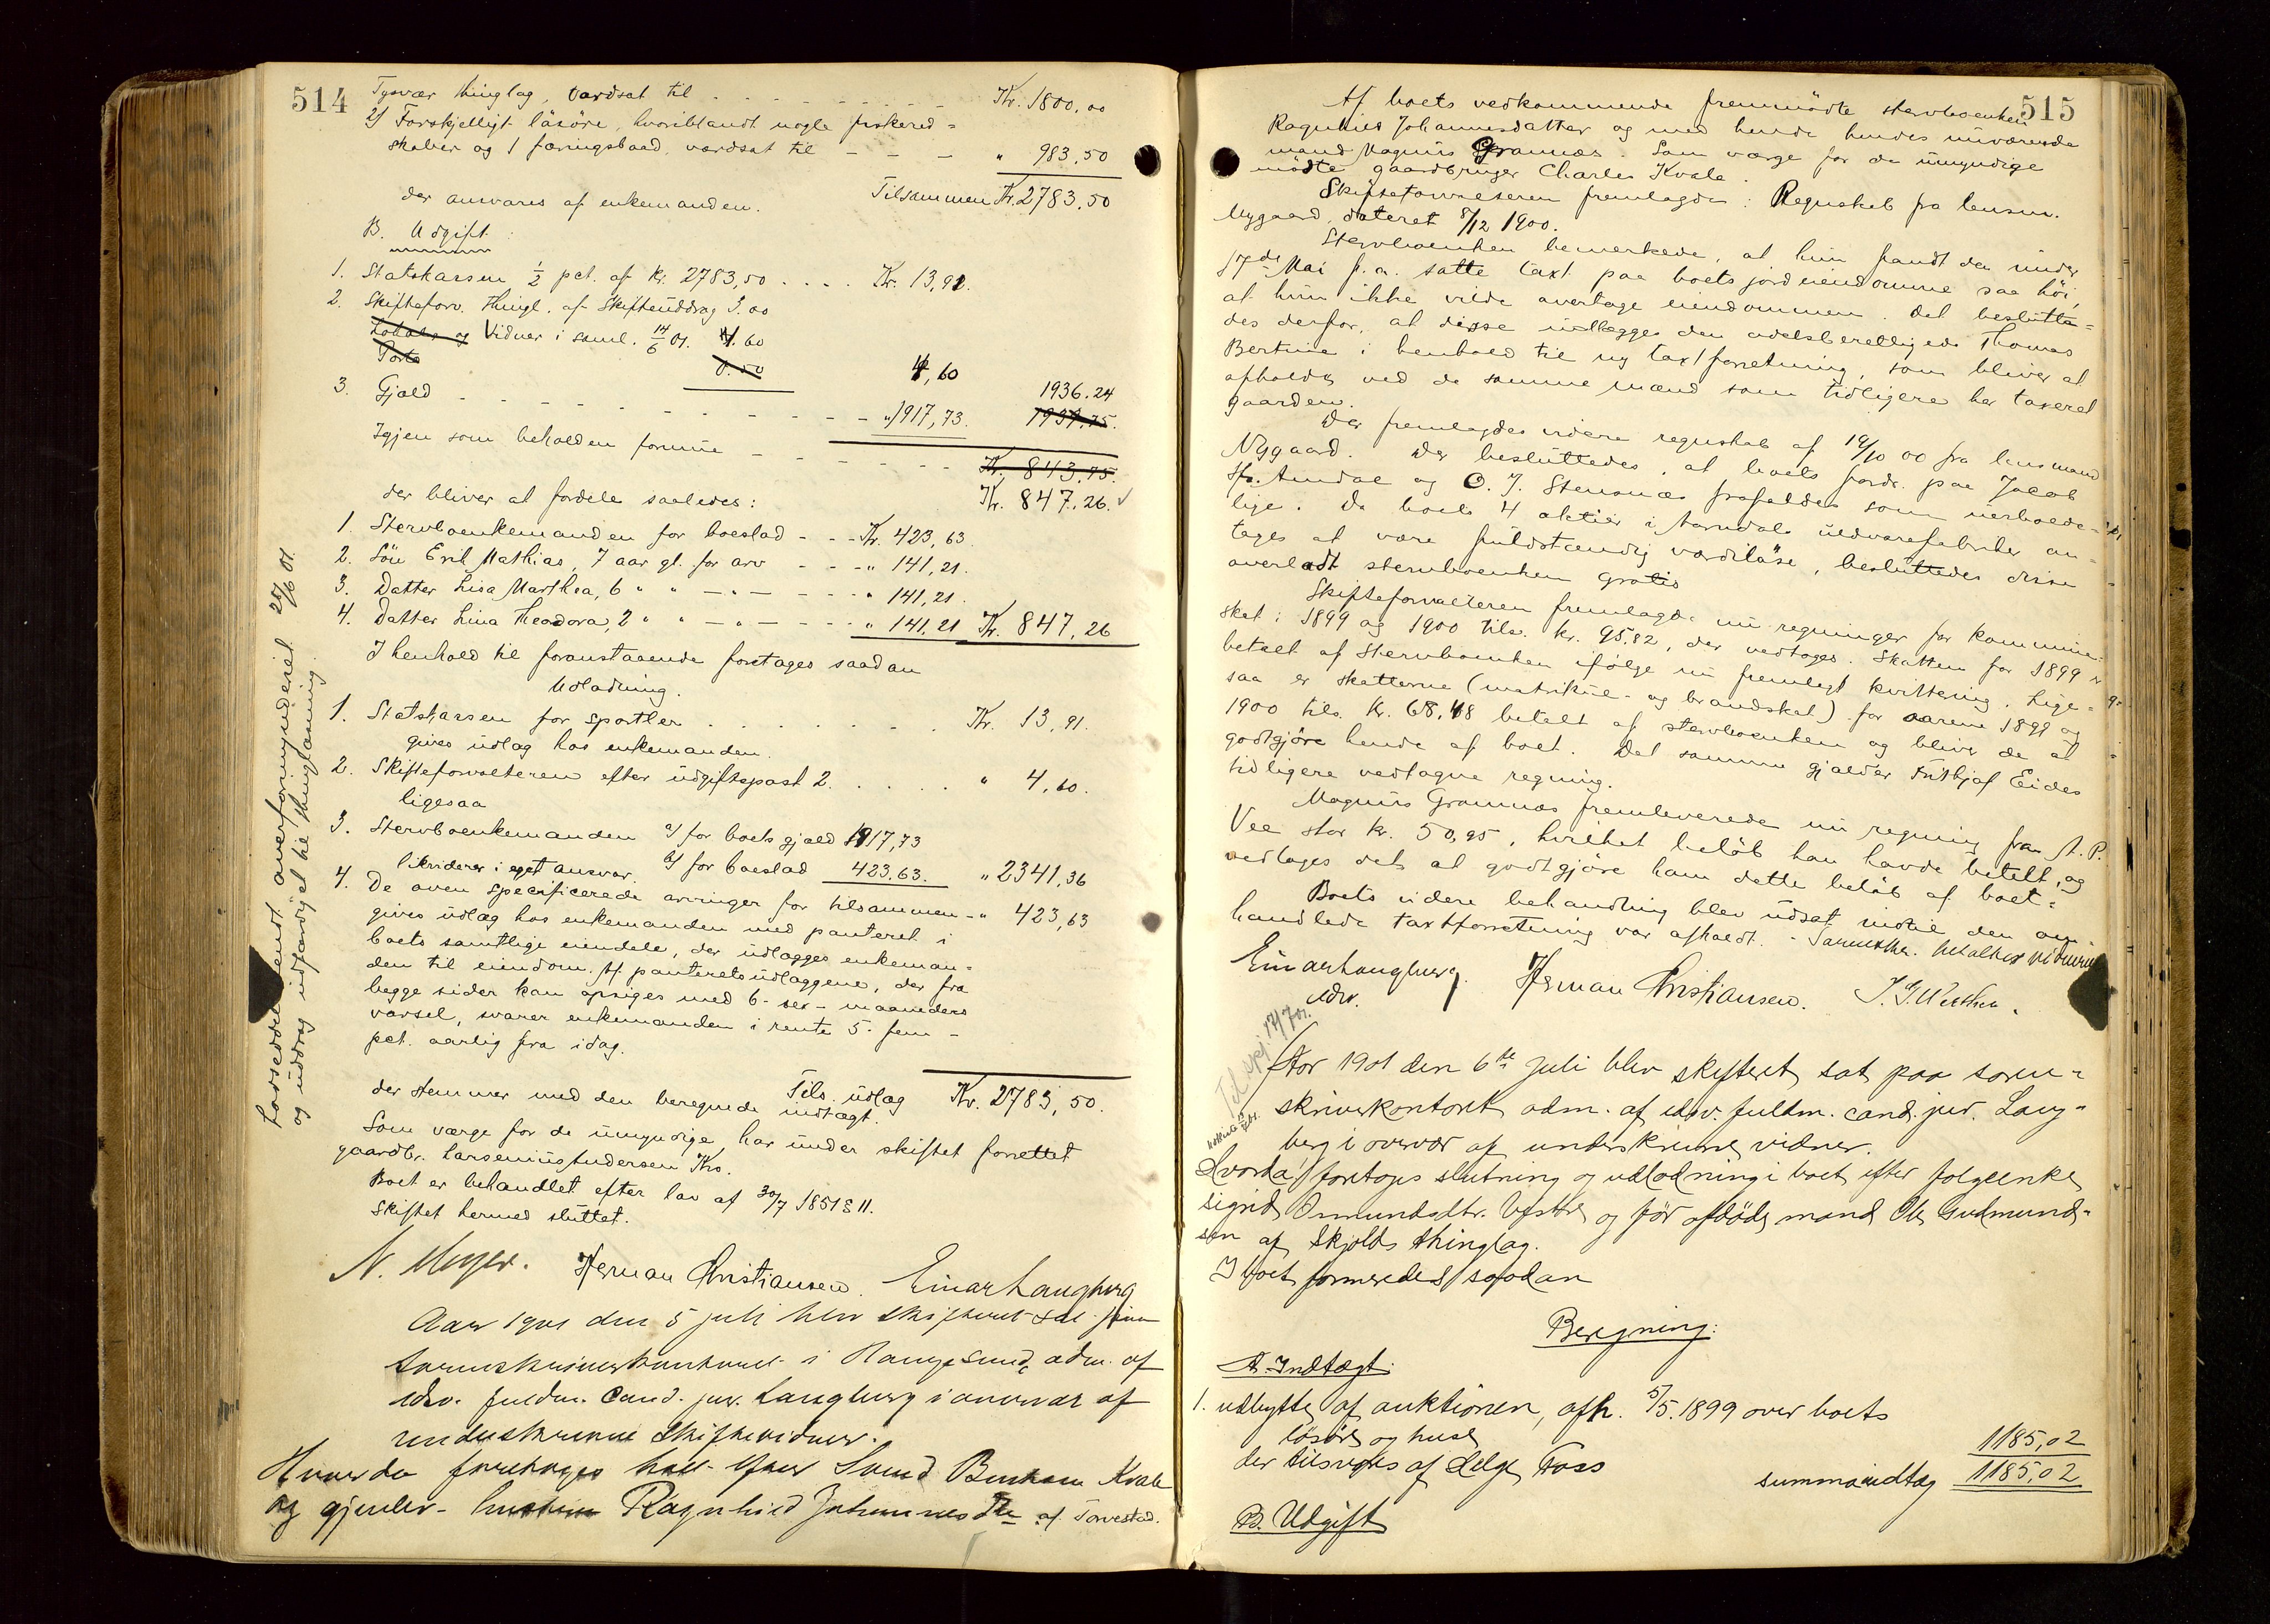 514
Tysvær thinglag, værdsat til Kr. 1800,00
2) Forskjelligt løsøre, hvoriblandt nogle fiskered=
skaber og 1 færingsbaad værdsat til " 983,50
Tilsammen Kr. 2783,50
der ansvares af enkemanden.
B. Udgift:
1. Statskassen ½ pct. af Kr. 2783,50 .... Kr. 13,91.
2. Skifteforv. thingl. af Skifteuddrag 3.00
Lokale og Vidner i saml. 14/6 01. 1.60
Porto 0.50 4,60
3. Gjæld " 1917,73. 1936.24
1939.75.
Igjen som beholden formue Kr. 843.75.
Kr. 847.26.
der bliver at fordele saaledes:
1. Stervboenkemanden for boeslod - - - Kr. 423,63.
2. Søn Emil Mathias, 7 aar gl. for arv - - - " 141,21.
3. Datter Lisa Marthea, 6 " " — " — - - - " 141,21.
4. Datter Lina Theodora, 2 " " — " — - - - " 141,21 Kr. 847,26
I henhold til foranstaaende foretages saadan
Udlodning.
1. Statskassen for sportler Kr. 13,91.
gives udlæg hos enkemanden.
2. Skifteforvalteren efter udgiftspost 2. " 4,60.
ligesaa
3. Stervboenkemanden a/ for boets gjæld 1917,73
likviderer i eget ansvar. b/ for boeslod 423.63. " 2341,36
4. De oven specificerede arvinger for tilsammen - " 423,63
gives udlæg hos enkemanden med panteret i
boets samtlige eiendele, der udlægges enkeman=
den til eiendom. Af panteretsudlæggene, der fra
begge sider kan opsiges med 6- sex- maaneders
varsel, svarer enkemanden i rente 5- fem-
pct. aarlig fra idag.
Tils. udlæg Kr. 2783,50.
der stemmer med den beregnede indtægt.
Som værge for de umyndige har under skiftet forrettet
gaardbr. Larsenius Andersen Kro.
Boet er behandlet efter lov af 30/7 1851 § 11.
Skiftet hermed sluttet.
N. Meyer. Herman Christiansen. Einar Langberg
Aar 1901 den 5 juli blev skifteret sat paa
sorenskriverkontoret i Haugesund, adm. af
edsv. fuldm. cand. jur. Langberg i overvær af
underskrevne skiftevidner.
Hvorda foretoges boet efter Svend Kvale
og gjenlev. hustru Ragnhild Johannesdtr af Torvestad.
Lodseddel sendt overformynderiet 25/6 01.
og uddrag udfærdiget til thinglæsning.
515
Af boets vedkommende fremmødte stervboenken
Ragnhild Johannesdatter og med hende hendes nuværende
mand Magnus Grannæs. Som værge for de umyndige
mødte gaardbruger Charles Kvale.
Skifteforvalteren fremlagde: Regnskab fra lensm.
Nygaard, dateret 8/12 1900.
Stervboenken bemerkede, at hun fandt den under
17de Mai f. a. satte taxt paa boets jordeiendomme saa høi,
at hun ikke vilde overtage eiendommen. Det beslutte=
des derfor, at disse udlægges den odelsberettigede Thomas
Bertine i henhold til ny taxtforretning, som bliver at
afholde ved de samme mænd som tidligere har taxeret
gaarden.
Der fremlagdes videre regnskab af 19/10 00 fra lensmand
Nygaard. Der besluttedes, at boets fordr. paa Jacob
Hs. Amdal og O. J. Stensnæs frafaldes som uerholde=
lige. Da boets 4 aktier i Aarmdals uldvarefabriker an=
tages at være fuldstændig værdiløse, besluttedes disse
overladt stervboenken gratis
Skifteforvalteren fremlagde nu regninger for kommune=
skat i 1899 og 1900 tils. kr. 95.82, der vedtoges. Skatten for 1899 er
betalt af stervboenken ifølge nu fremlagt kvittering. Lige=
saa er skatterne (matrikul- og brandskat) for aarene 1899 og
1900 tils. Kr. 68,48 betalt af stervboenken og bliver de at
godtgjøre hende af boet. Det samme gjælder Frithjof Eides
tidligere vedtagne regning.
Magnus Grannæs fremleverede nu regning fra A. P.
Vee stor kr. 50,95, hvilket beløb han havde betalt, og
vedtoges det at godtgjøre ham dette beløb af boet.
Boets videre behandling blev udsat indtil den om=
handlede taxtforretning var afholdt.
Einar Langberg
edsv. Herman Christiansen.
Aar 1901 den 6te Juli blev skifteret sat paa soren=
skriverkontoret adm. af edsv. fuldm. cand. jur. Lang=
berg i overvær af underskrevne vidner.
Hvorda foretoges slutning og udlodning i boet efter folgeenke
Sigrid Omundsdtr. og før afdøde mand Ole Gudmund=
sen af Skjolds thinglag.
I boet formeredes saadan
Beregning:
A. Indtægt:
1. udbytte af auktionen, afh. 5/5. 1899 over boets
løsøre og huse 1185,02
der tilsvares af Helge Foss summa indtæg 1185,02
B. Udgift